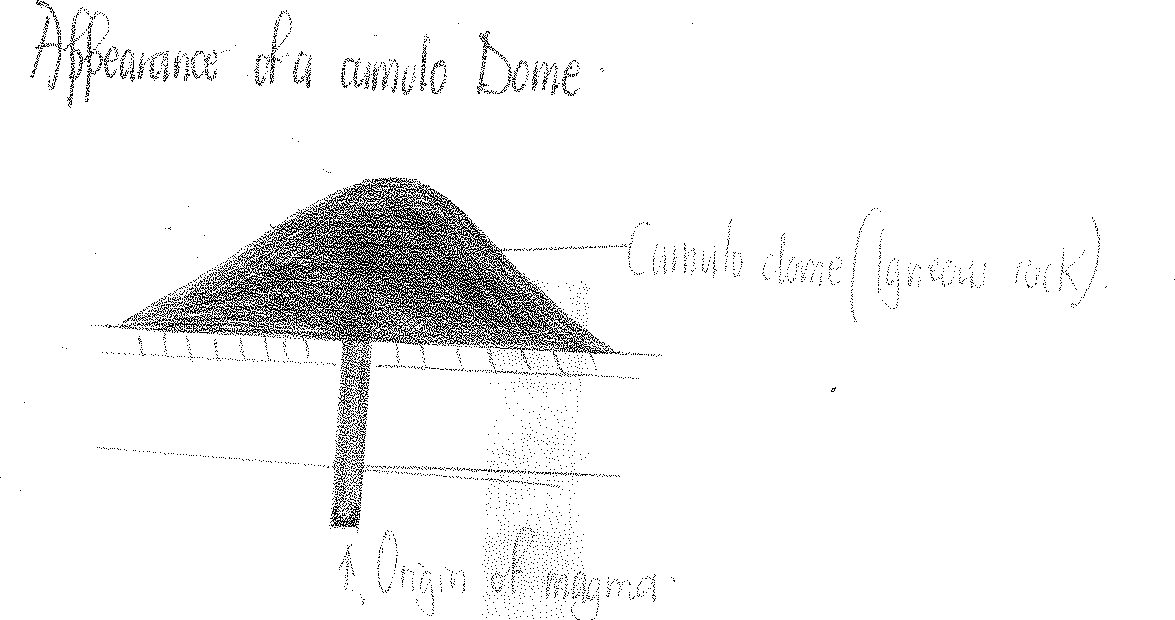 Appearance of a cumulo Dome.
Cumulo dome (Igneous rock).
Origin of magma.